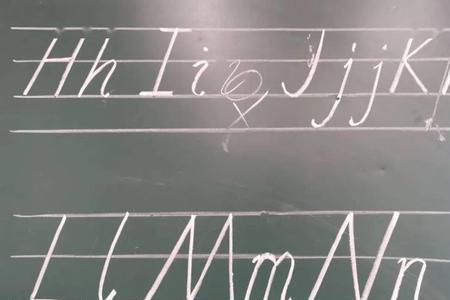 H h I i J j j K
L l M m N n